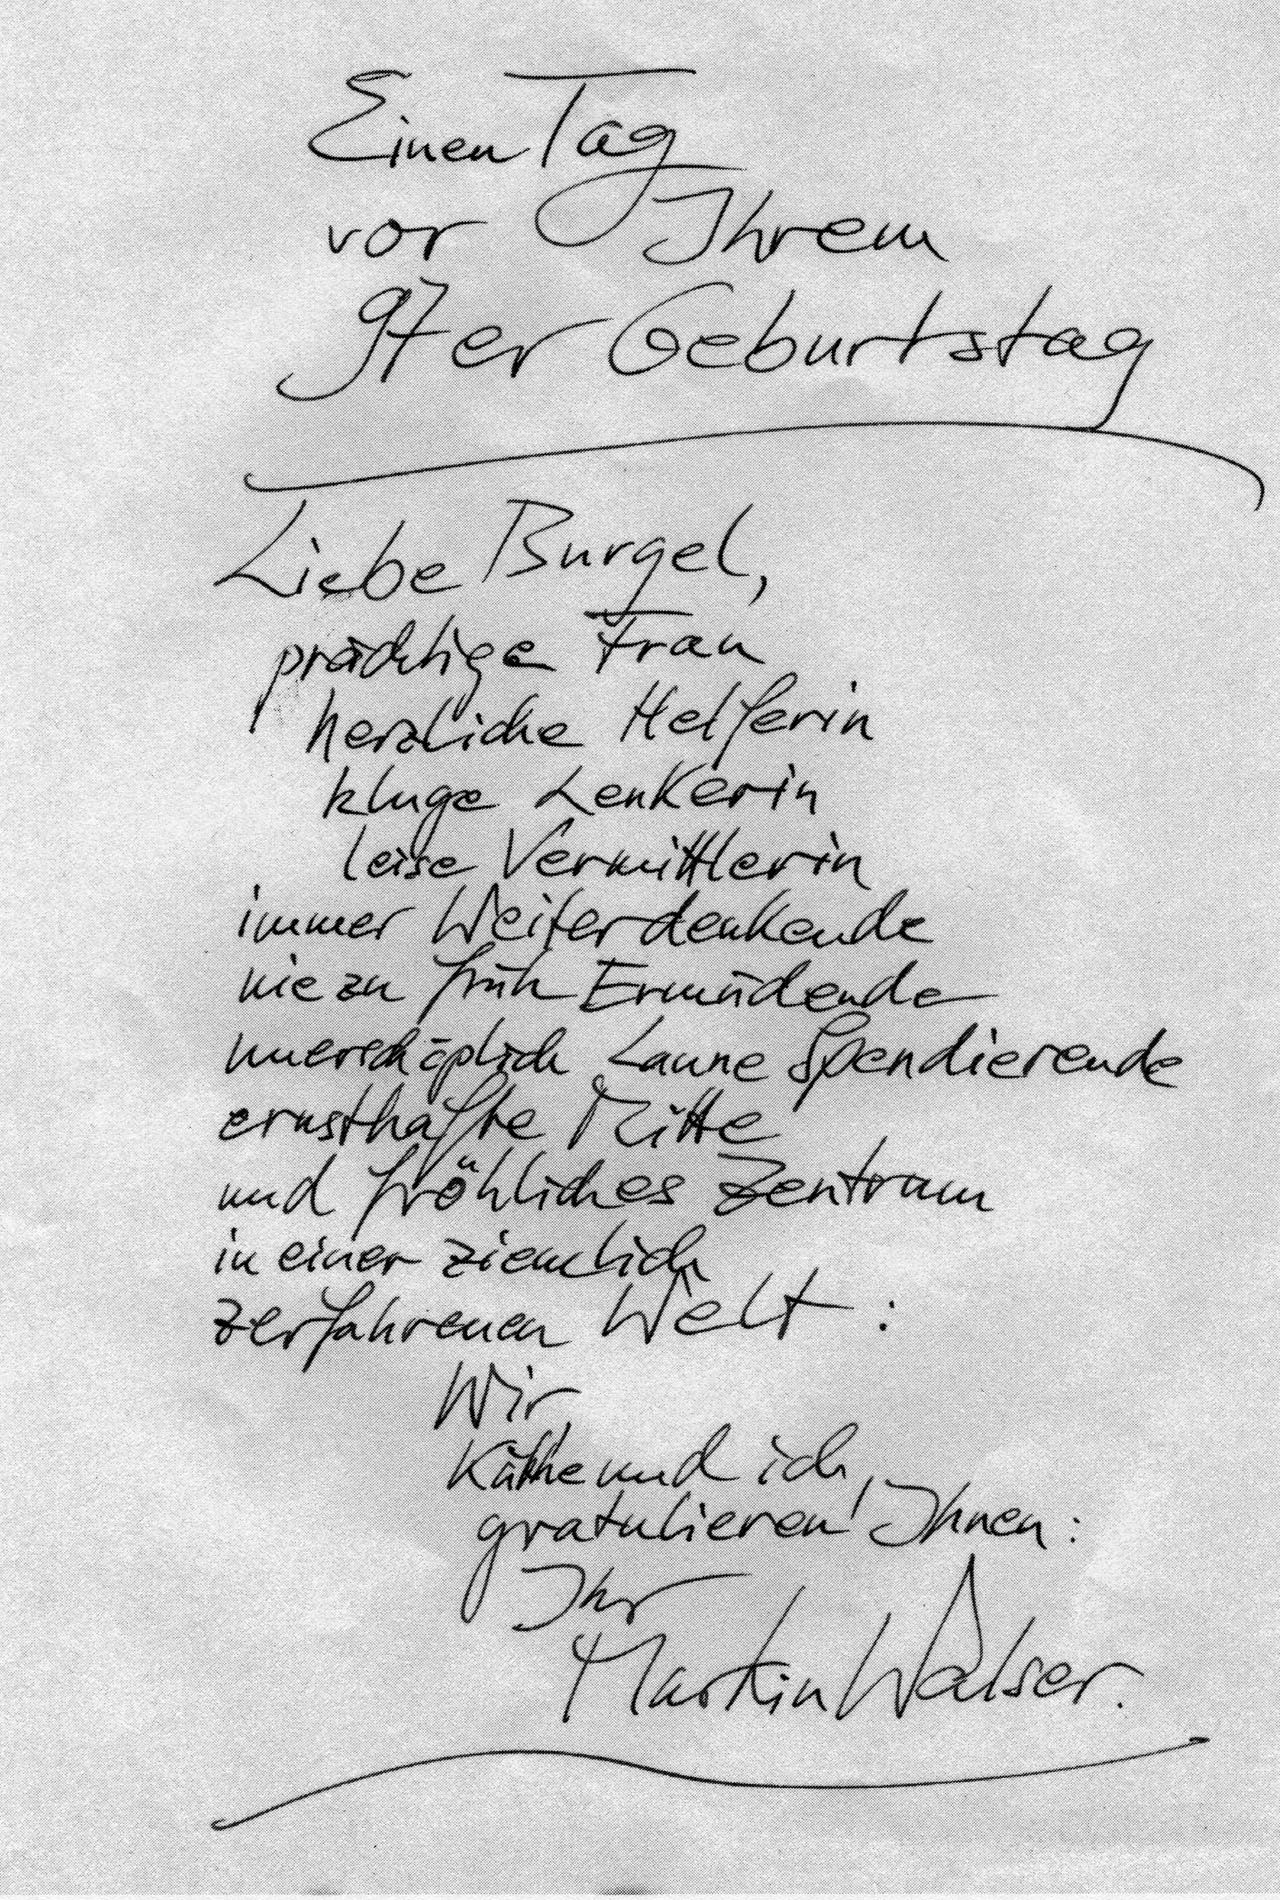 Einen Tag
vor Ihrem
97er Geburtstag
Liebe Burgel,
prächtige Frau
herzliche Helferin
kluge Lenkerin
leise Vermittlerin
immer Weiterdenkende
nie zu früh Ermüdende
unerschöplich Laune Spendierende
ernsthafte Mitte
und fröhliches Zentrum
in einer ziemlich
zerfahrenen Welt :
Wir,
Käthe und ich,
gratulieren Ihnen :
Ihr
Martin Walser.